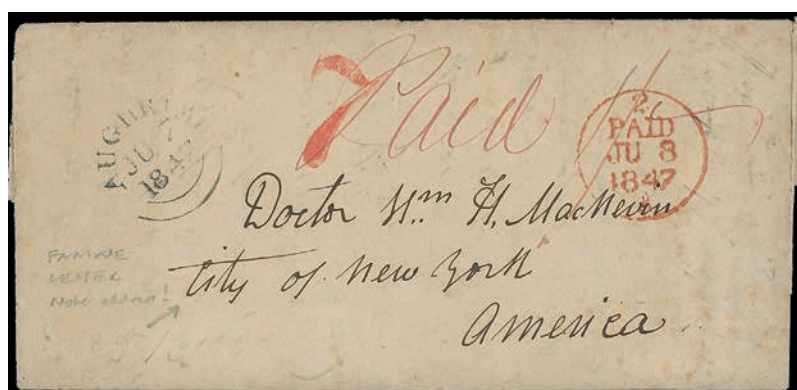 7 Paid 1/-
AUGHRIM
JU 7
1847
2
PAID
JU 8
1847
Doctor Wm H. MacNevin
City of New York
America
FAMINE
LETTER
Note address!